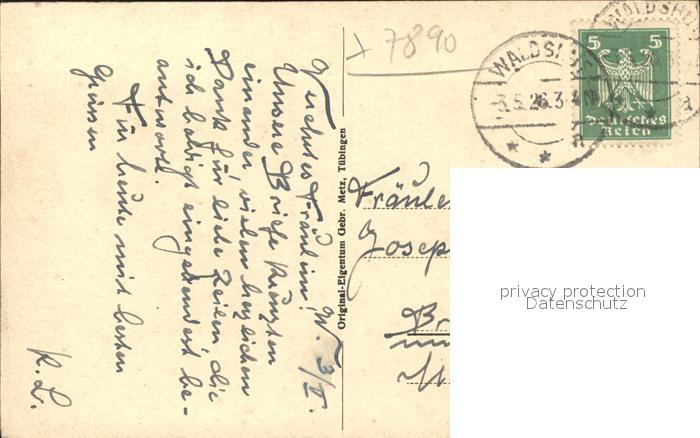 W. 3/V.
Verehrtes Fräulein!
Unsere Briefe kreuzten
einander vielen herzlichen
Dank für liebe Zeilen die
ich baldigst eingehendst be-
antworte.
Für heute mit besten
Grüssen
K. L.
Original-Eigentum Gebr. Metz, Tübingen
+ 7890
WALDSHUT
-3.5.26.3-4N
* *
a
WALDSHUT
a
5 5
Deutsches
Reich
Fräule
Josep
Br
privacy protection
Datenschutz